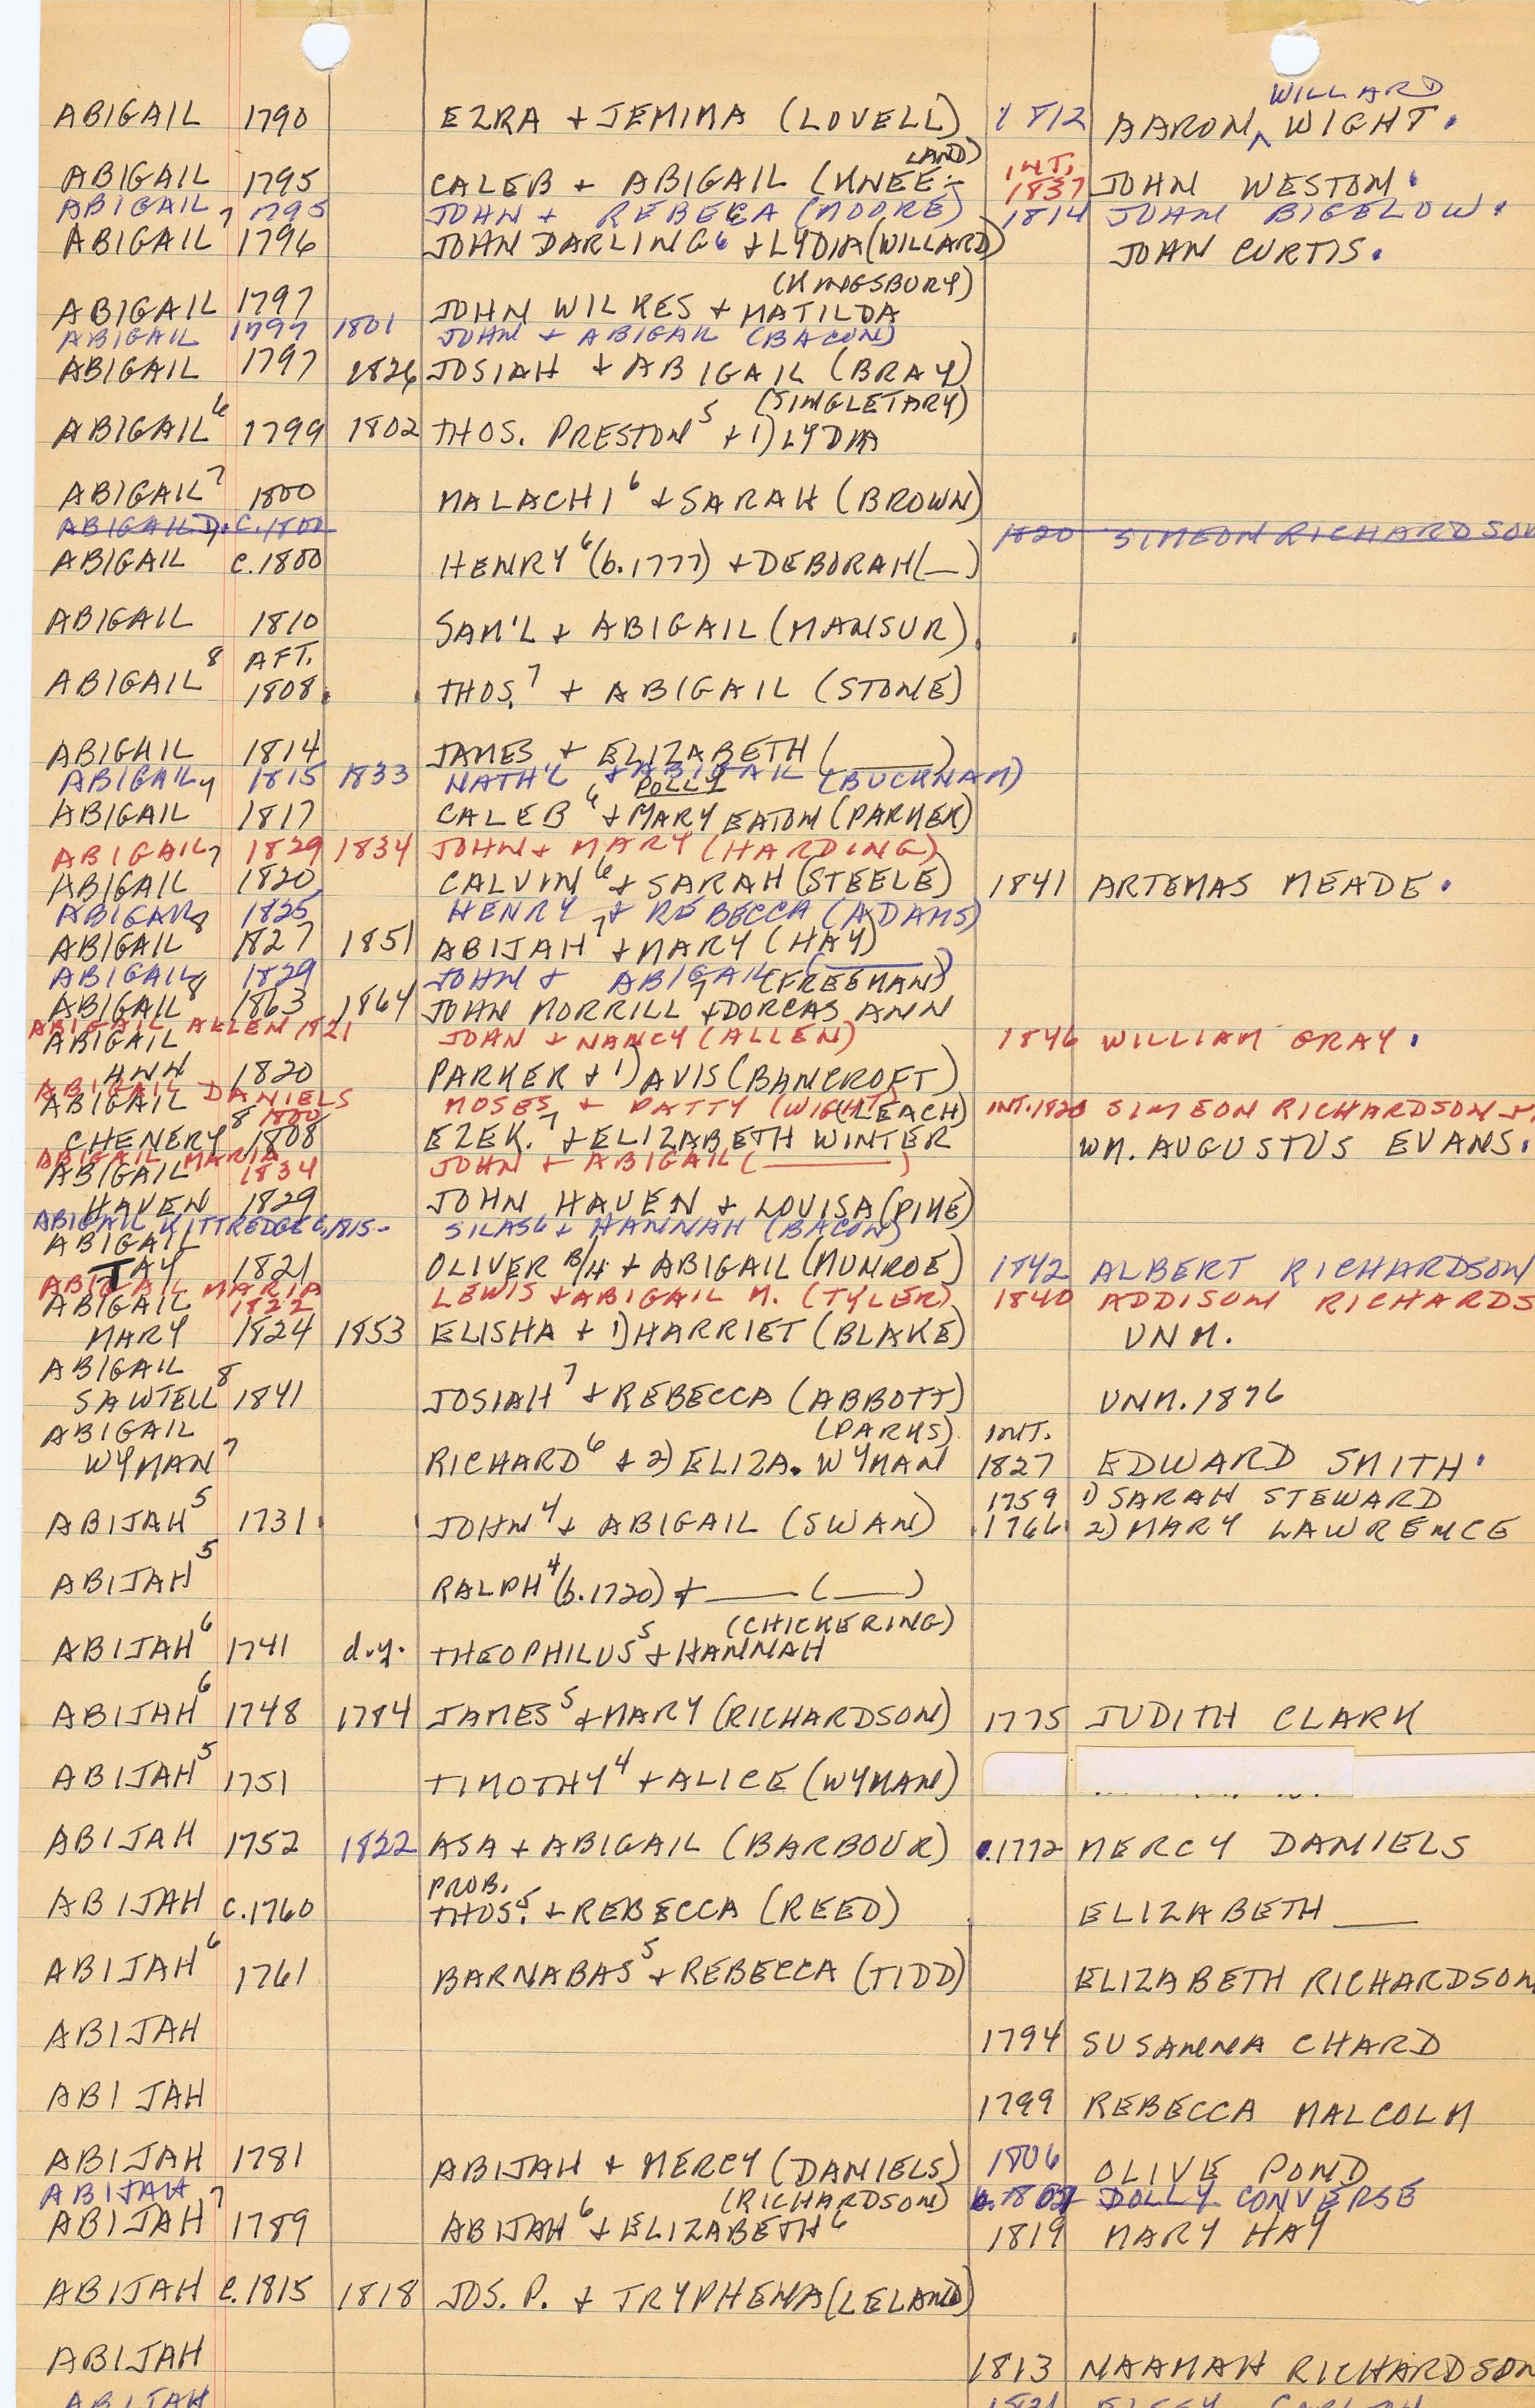 WILLARD
ABIGAIL 1790 EZRA + JEMIMA (LOVELL) 1812 AARON ^ WIGHT.
LAND) INT.
ABIGAIL 1795 CALEB + ABIGAIL (KNEE- 1837 JOHN WESTON.
ABIGAIL 1795 JOHN + REBECA (MOORE) 1814 JOHN BIGELOW.
ABIGAIL 7 1796 JOHN DARLING 6 + LYDIA (WILLARD) JOHN CURTIS.
(KINGSBURY)
ABIGAIL 1797 JOHN WILKES + MATILDA
ABIGAIL 1797 1801 JOHN + ABIGAIL (BACON)
ABIGAIL 1797 1826 JOSIAH + ABIGAIL (BRAY)
(SINGLETARY)
ABIGAIL 6 1799 1802 THOS. PRESTON 5 + 1) LYDIA
ABIGAIL 7 1800 MALACHI 6 + SARAH (BROWN)
ABIGAIL D. C. 1800 1820 SIMEON RICHARDSON
ABIGAIL 7 C. 1800 HENRY 6 (b. 1777) + DEBORAH (__)
ABIGAIL 1810 SAM'L + ABIGAIL (MANSUR)
AFT.
ABIGAIL 8 1808. THOS. 7 + ABIGAIL (STONE)
ABIGAIL 1814 JAMES + ELIZABETH (____)
ABIGAIL 1815 1833 NATH'L + ABIGAIL (BUCKNAM)
POLLY
ABIGAIL 7 1817 CALEB 6 + MARY EATON (PARKER)
ABIGAIL 1829 1834 JOHN + MARY (HARDING)
ABIGAIL 7 1820 CALVIN 6 + SARAH (STEELE) 1841 ARTEMAS MEADE.
ABIGAIL 1825 HENRY + REBECCA (ADAMS)
ABIGAIL 8 1827 1851 ABIJAH 7 + MARY (HAY)
ABIGAIL 1829 JOHN + ABIGAIL (____)
(FREEMAN)
ABIGAIL 8 1863 1864 JOHN MORRILL 7 + DORCAS ANN
ABIGAIL ALLEN 1821 JOHN + NANCY (ALLEN) 1846 WILLIAM GRAY.
ABIGAIL
ANN 1820 PARKER + 1) AVIS (BANCROFT)
ABIGAIL DANIELS 1800 MOSES + PATTY (WIGHT) INT. 1820 SIMEON RICHARDSON Jr.
ABIGAIL (LEACH)
CHENERY 8 1808 EZEK. 7 + ELIZABETH WINTER WM. AUGUSTUS EVANS.
ABIGAIL MARIA 1834 JOHN + ABIGAIL (____)
ABIGAIL
HAVEN 1829 JOHN HAVEN + LOUISA (PIKE)
ABIGAIL KITTREDGE C. 1815- SILAS 6 + HANNAH (BACON)
ABIGAIL
TAY 1821 OLIVER B/4 + ABIGAIL (MUNROE) 1842 ALBERT RICHARDSON
ABIGAIL MARIA 1822 LEWIS + ABIGAIL M. (TYLER) 1840 ADDISON RICHARDS
ABIGAIL
MARY 1824 1853 ELISHA + 1) HARRIET (BLAKE) UNM.
ABIGAIL
SAWTELL 8 1841 JOSIAH 7 + REBECCA (ABBOTT) UNM. 1876
ABIGAIL (PARKS) INT.
WYMAN 7 RICHARD 6 + 2) ELIZA. WYMAN 1827 EDWARD SMITH.
1759 1) SARAH STEWARD
ABIJAH 5 1731 JOHN 4 + ABIGAIL (SWAN) 1766 2) MARY LAWRENCE
ABIJAH 5 RALPH 4 (b. 1720) + ____ (___)
(CHICKERING)
ABIJAH 6 1741 d.y. THEOPHILUS 5 + HANNAH
ABIJAH 6 1748 1784 JAMES 5 + MARY (RICHARDSON) 1775 JUDITH CLARK
ABIJAH 5 1751 TIMOTHY 4 + ALICE (WYMAN)
ABIJAH 1752 1822 ASA + ABIGAIL (BARBOUR) 1772 MERCY DANIELS
PROB.
ABIJAH C. 1760 THOS. 5 + REBECCA (REED) ELIZABETH ___
ABIJAH 6 1761 BARNABAS 5 + REBECCA (TIDD) ELIZABETH RICHARDSON
ABIJAH 1794 SUSANNA CHARD
ABIJAH 1799 REBECCA MALCOLM
ABIJAH 1781 ABIJAH + MERCY (DANIELS) 1806 OLIVE POND
ABIJAH (RICHARDSON) DOLLY CONVERSE
ABIJAH 7 1789 ABIJAH 6 + ELIZABETH 6 1819 MARY HAY
ABIJAH C. 1815 1818 JOS. P. + TRYPHENA (LELAND)
ABIJAH 1813 NAAMAH RICHARDSON
ABIJAH